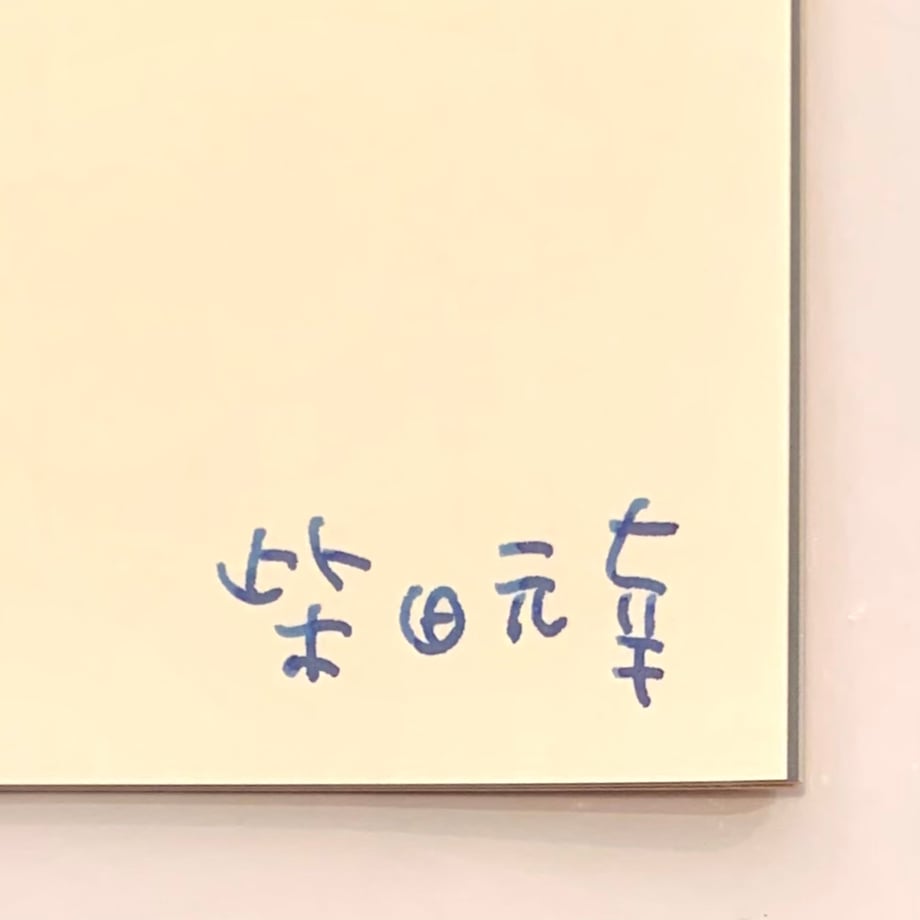 柴田元幸